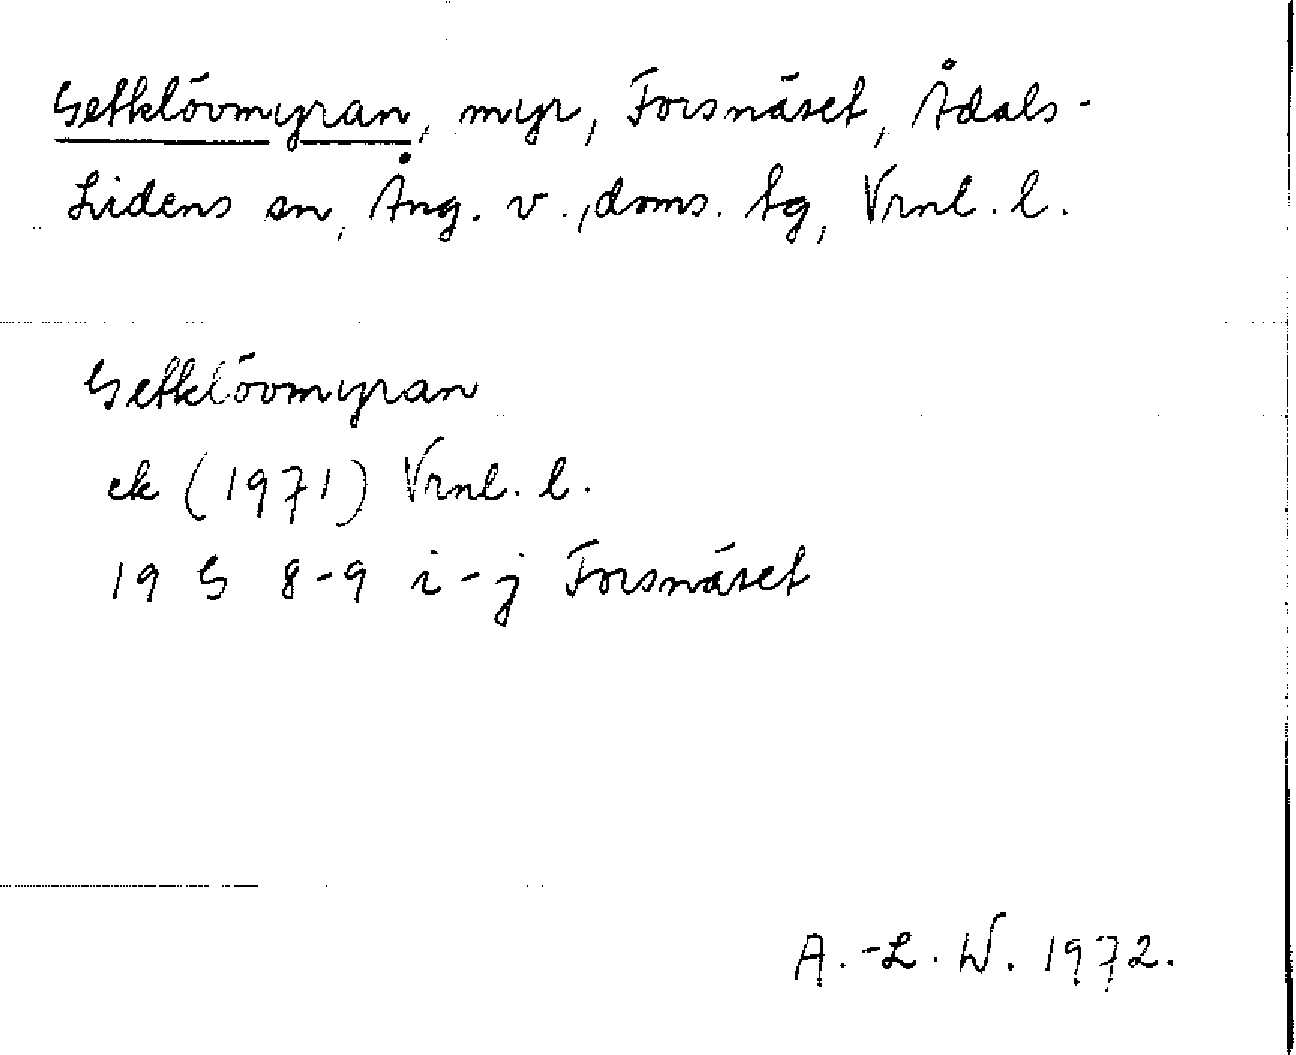 Getklövmyran, myr, Forsnäset, Ådals-
Lidens sn, Ång. v., doms. tg, Vrnl. l.
Getklövmyran
ek (1971) Vrnl. l.
19 G 8-9 i-j Forsnäset
A.-L. W. 1972.